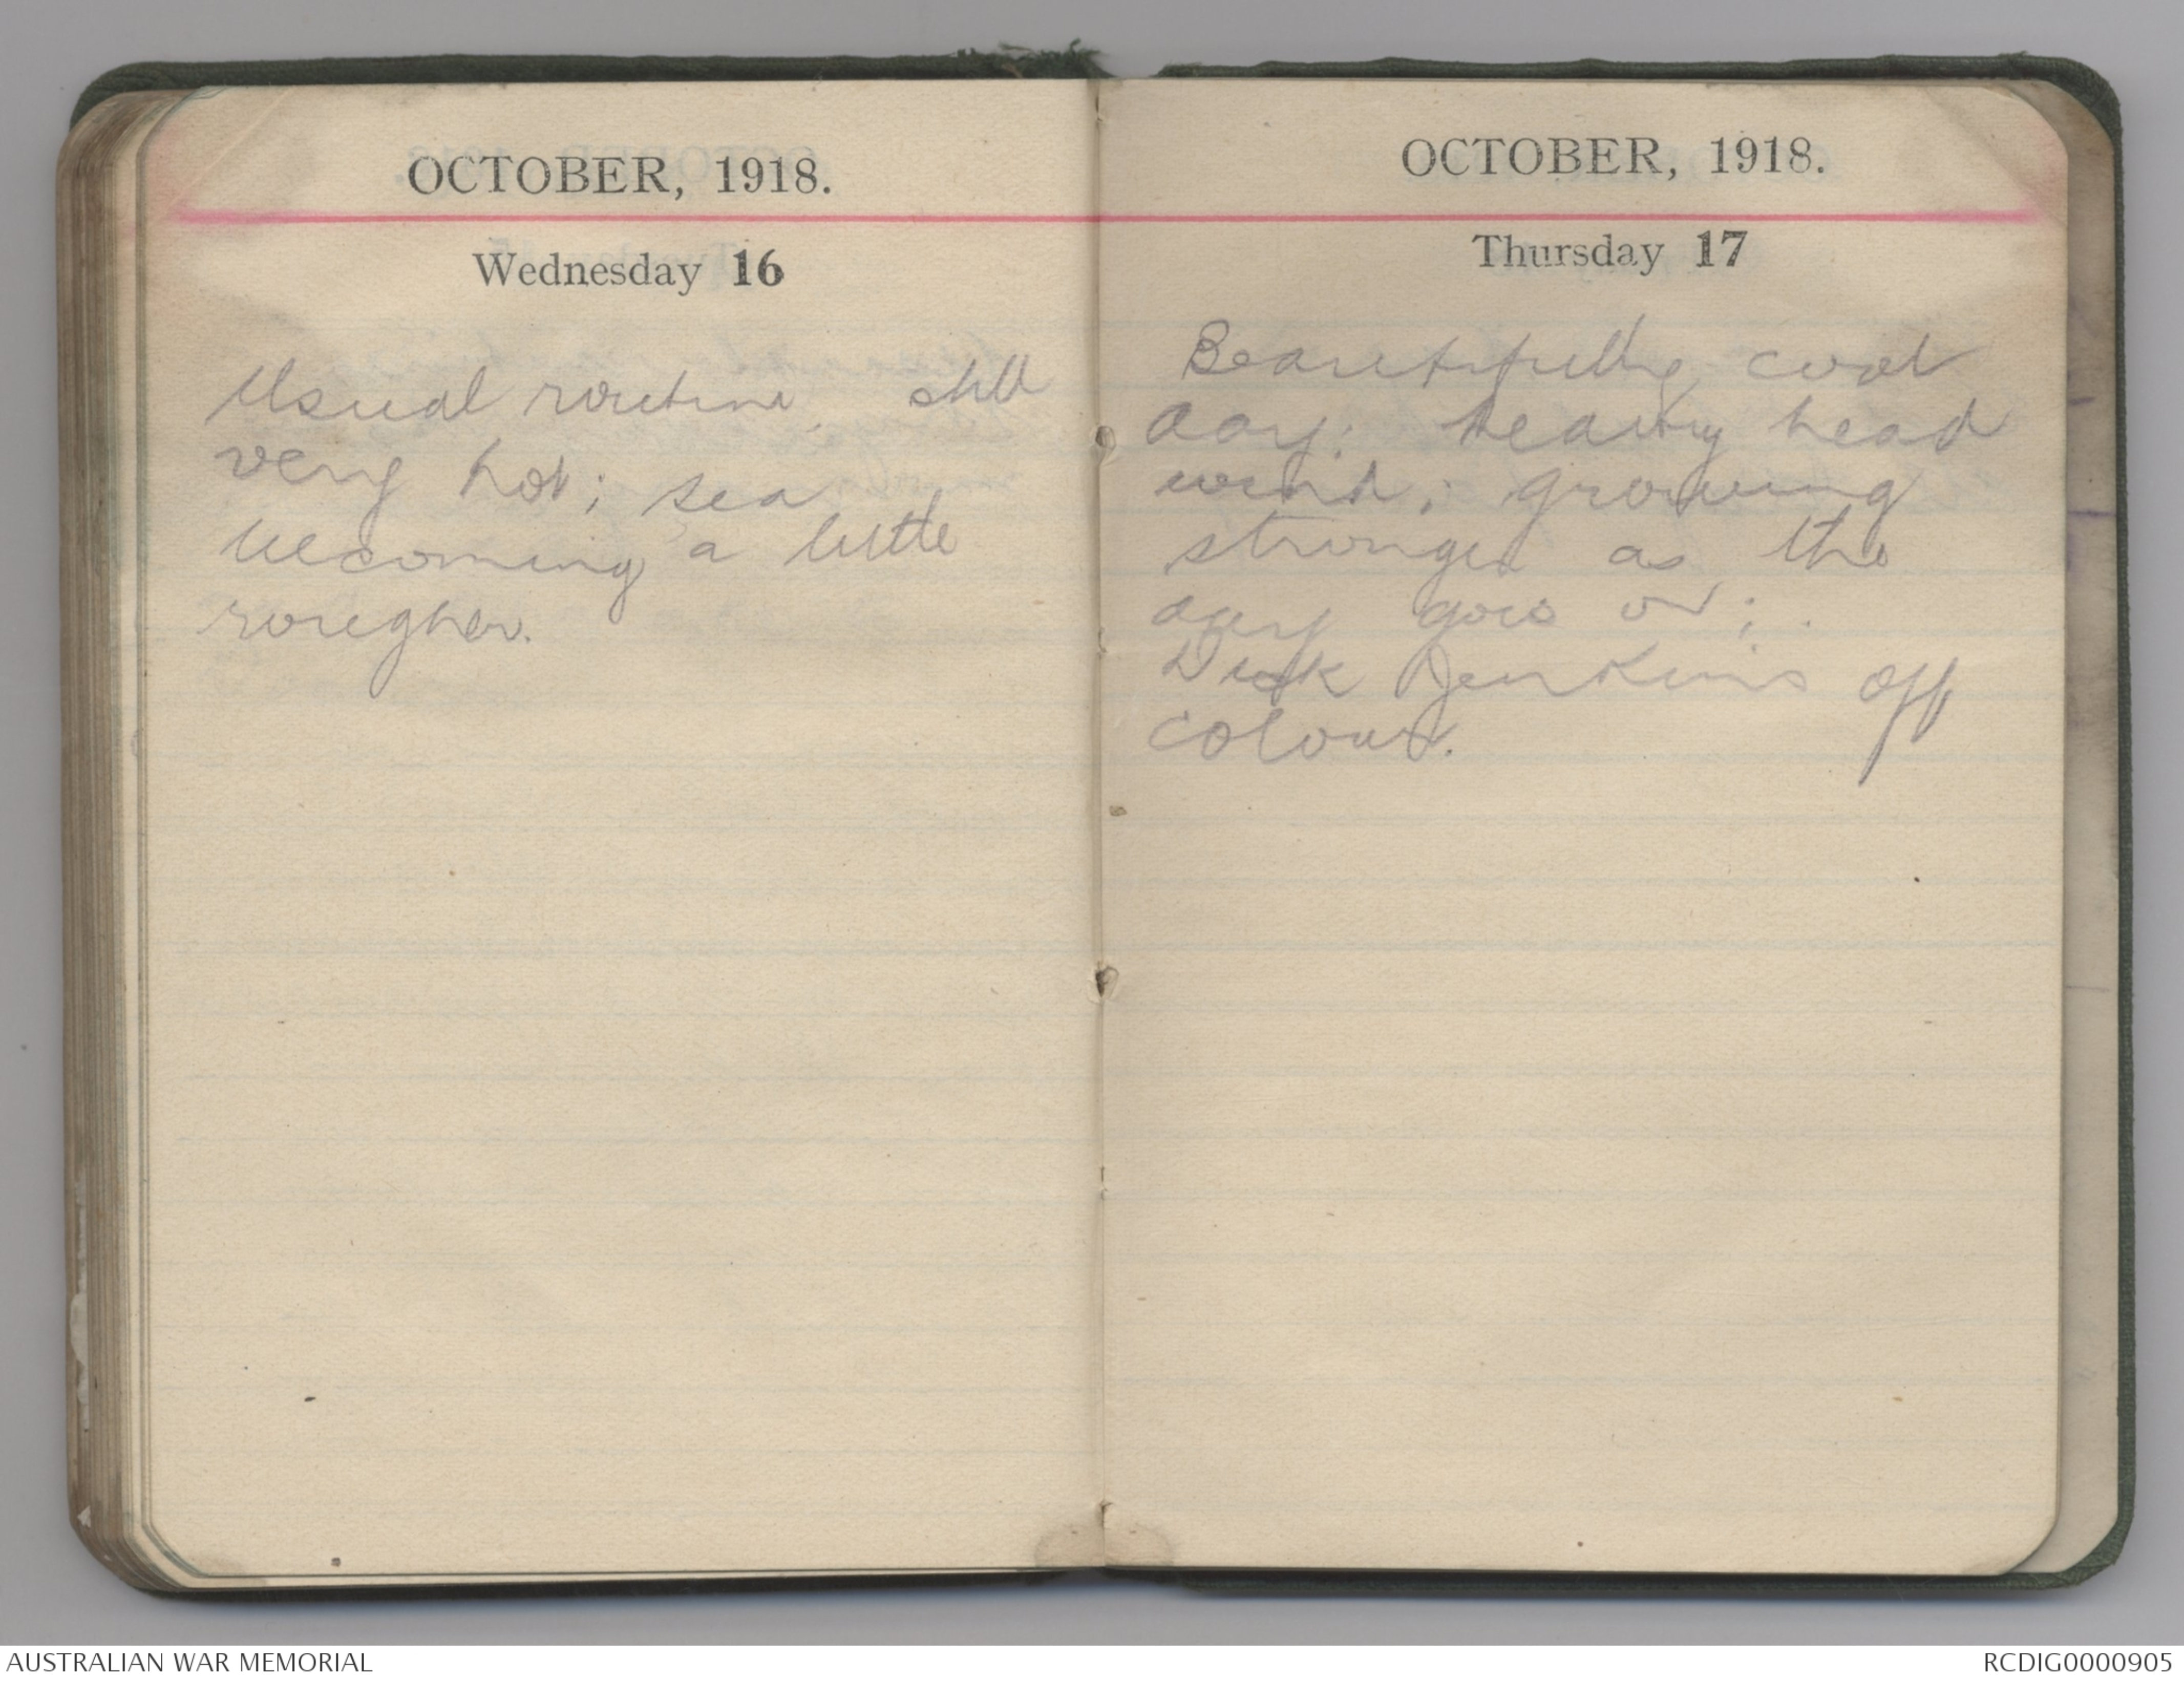 OCTOBER, 1918.
Wednesday 16
Usual routine, still
very hot; sea
becoming a little
rougher.
OCTOBER, 1918.
Thursday 17
Beautifully cool
day; heavy head
wind; growing
stronger as the
day goes on;
Dick Jenkins off
colour.
AUSTRALIAN WAR MEMORIAL
RCDIG0000905